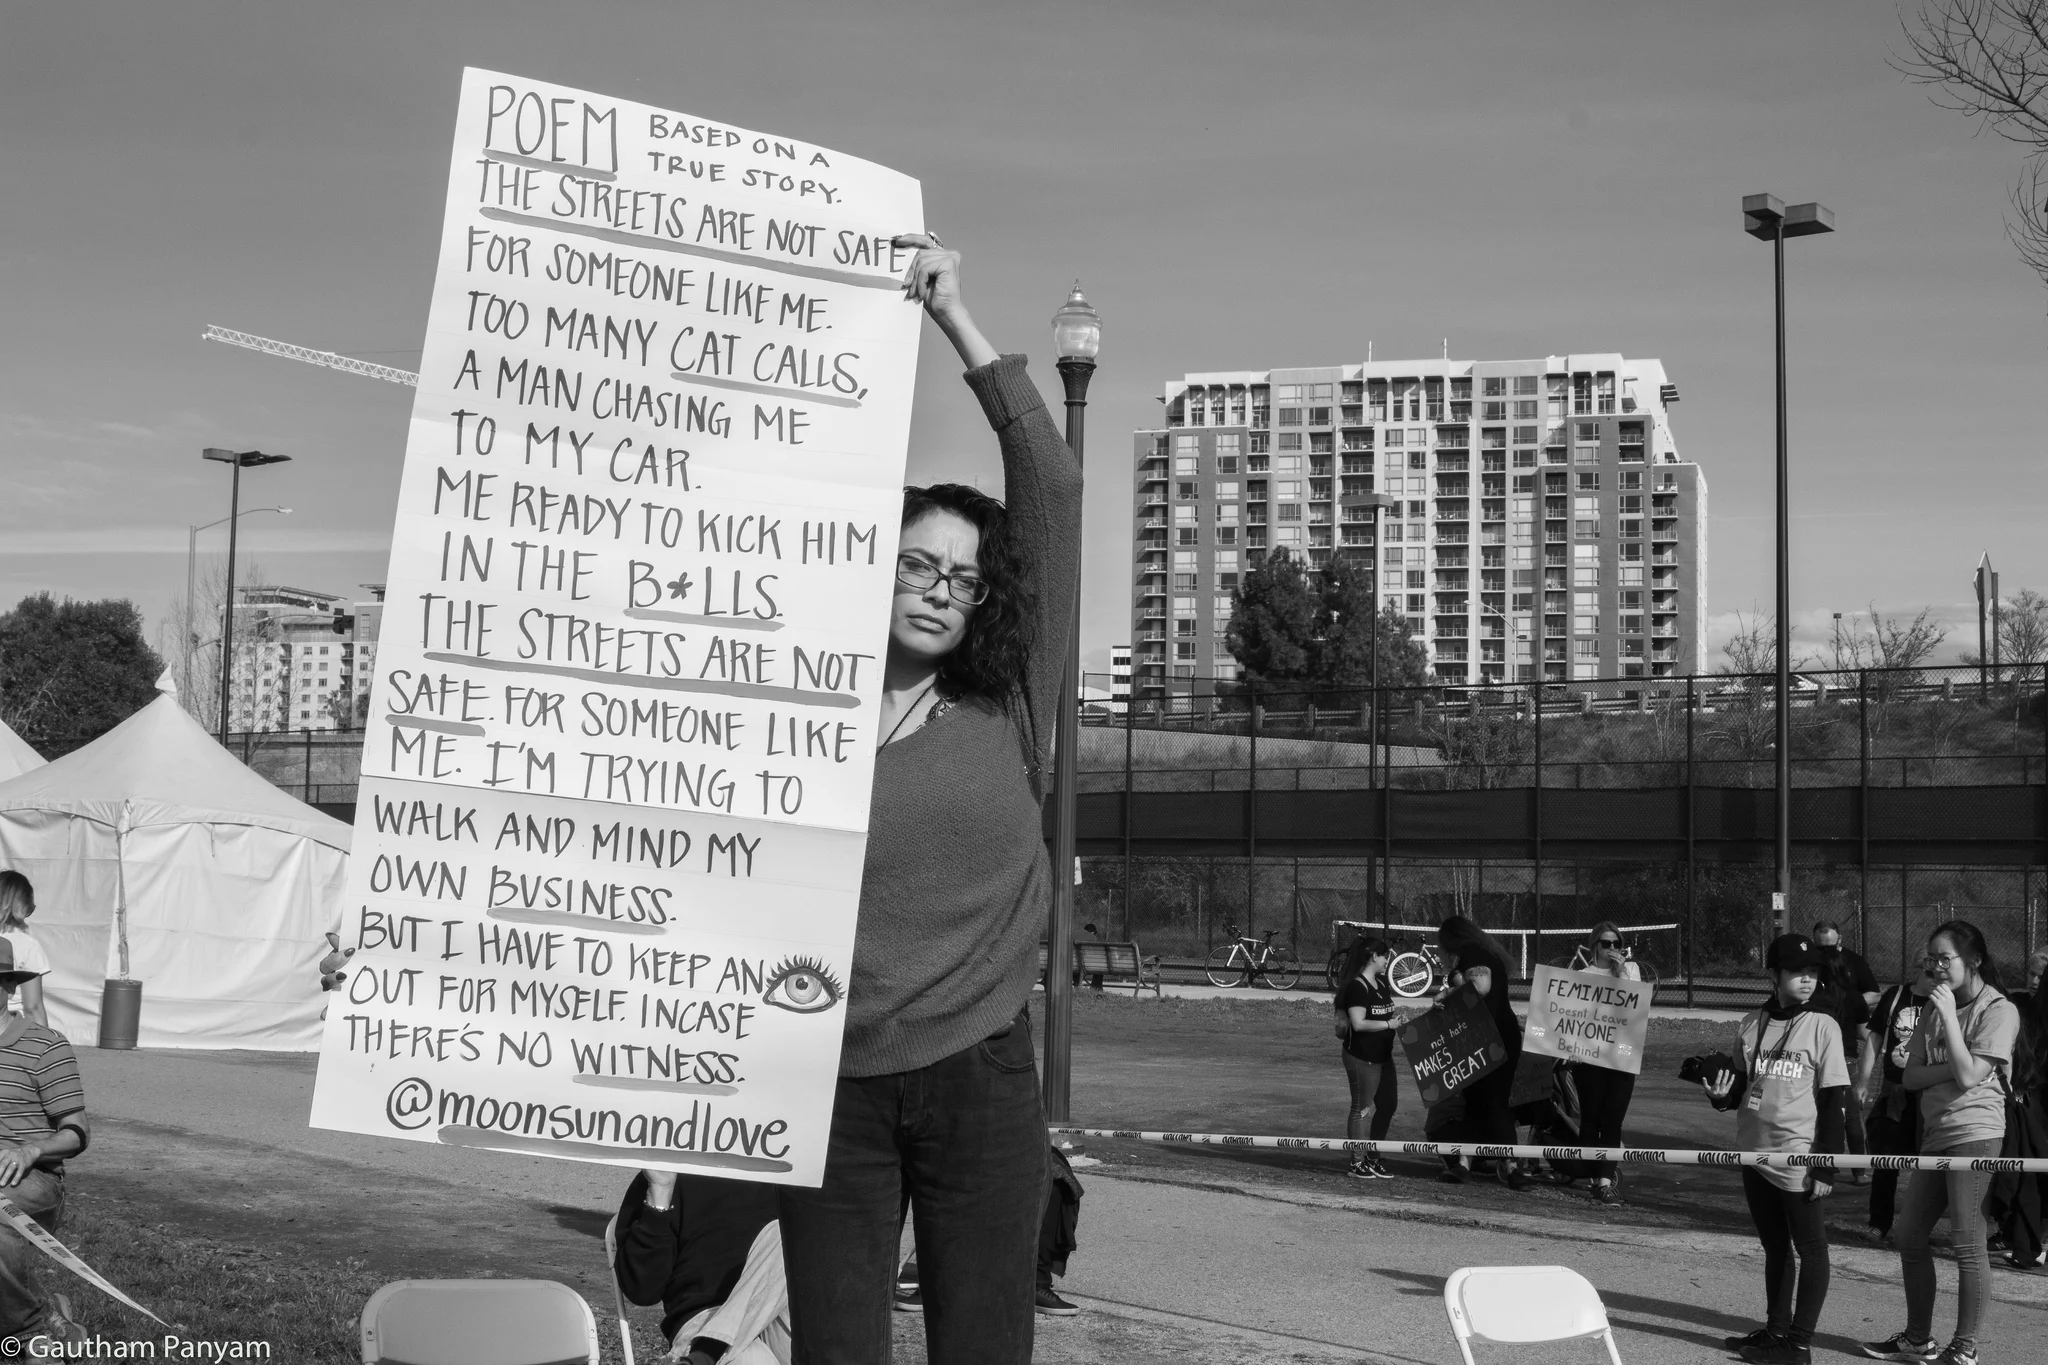 POEM BASED ON A
TRUE STORY.
THE STREETS ARE NOT SAFE
FOR SOMEONE LIKE ME.
TOO MANY CAT CALLS,
A MAN CHASING ME
TO MY CAR.
ME READY TO KICK HIM
IN THE B*LLS.
THE STREETS ARE NOT
SAFE. FOR SOMEONE LIKE
ME. I'M TRYING TO
WALK AND MIND MY
OWN BUSINESS.
BUT I HAVE TO KEEP AN
OUT FOR MYSELF. INCASE
THERE'S NO WITNESS.
@moonsunandlove
FEMINISM
Doesnt Leave
ANYONE
Behind
not hate
MAKES
GREAT
WOMEN'S
MARCH
CAUTION CAUTION CAUTION CAUTION CAUTION CAUTION CAUTION CAUTION
© Gautham Panyam